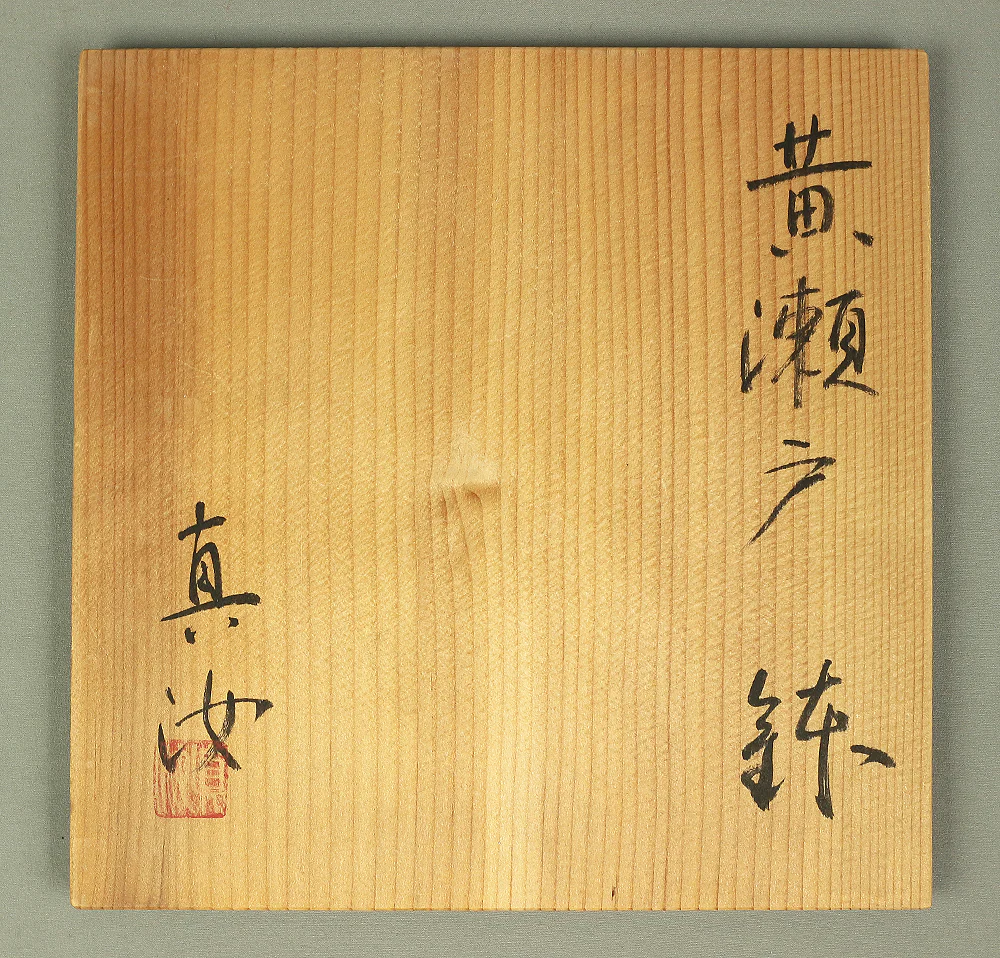 黄瀬戸 鉢
真汝